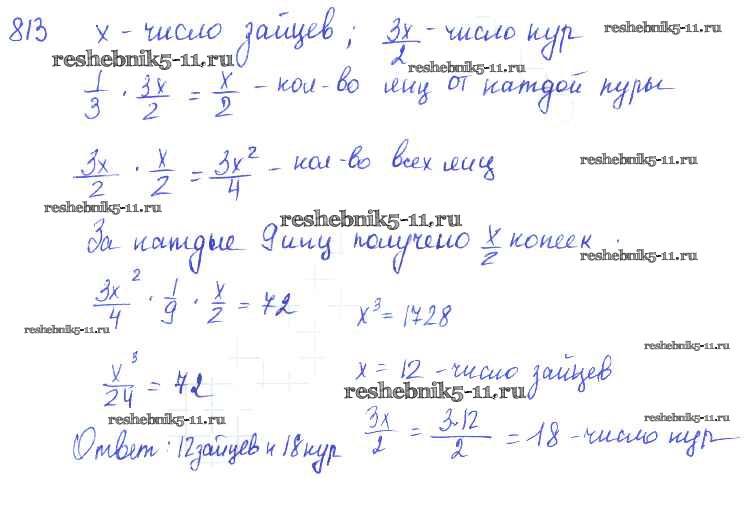 813 x - число зайцев; 3x/2 - число кур reshebnik5-11.ru
reshebnik5-11.ru reshebnik5-11.ru
1/3 · 3x/2 = x/2 - кол-во яиц от каждой куры
3x/2 · x/2 = 3x²/4 - кол-во всех яиц reshebnik5-11.ru
reshebnik5-11.ru
reshebnik5-11.ru
За каждые 9 яиц получено x/2 копеек.
reshebnik5-11.ru
3x²/4 · 1/9 · x/2 = 72 x³ = 1728
reshebnik5-11.ru
reshebnik5-11.ru
x³/24 = 72 x = 12 - число зайцев
reshebnik5-11.ru
reshebnik5-11.ru reshebnik5-11.ru
Ответ: 12 зайцев и 18 кур 3x/2 = 3·12/2 = 18 - число кур